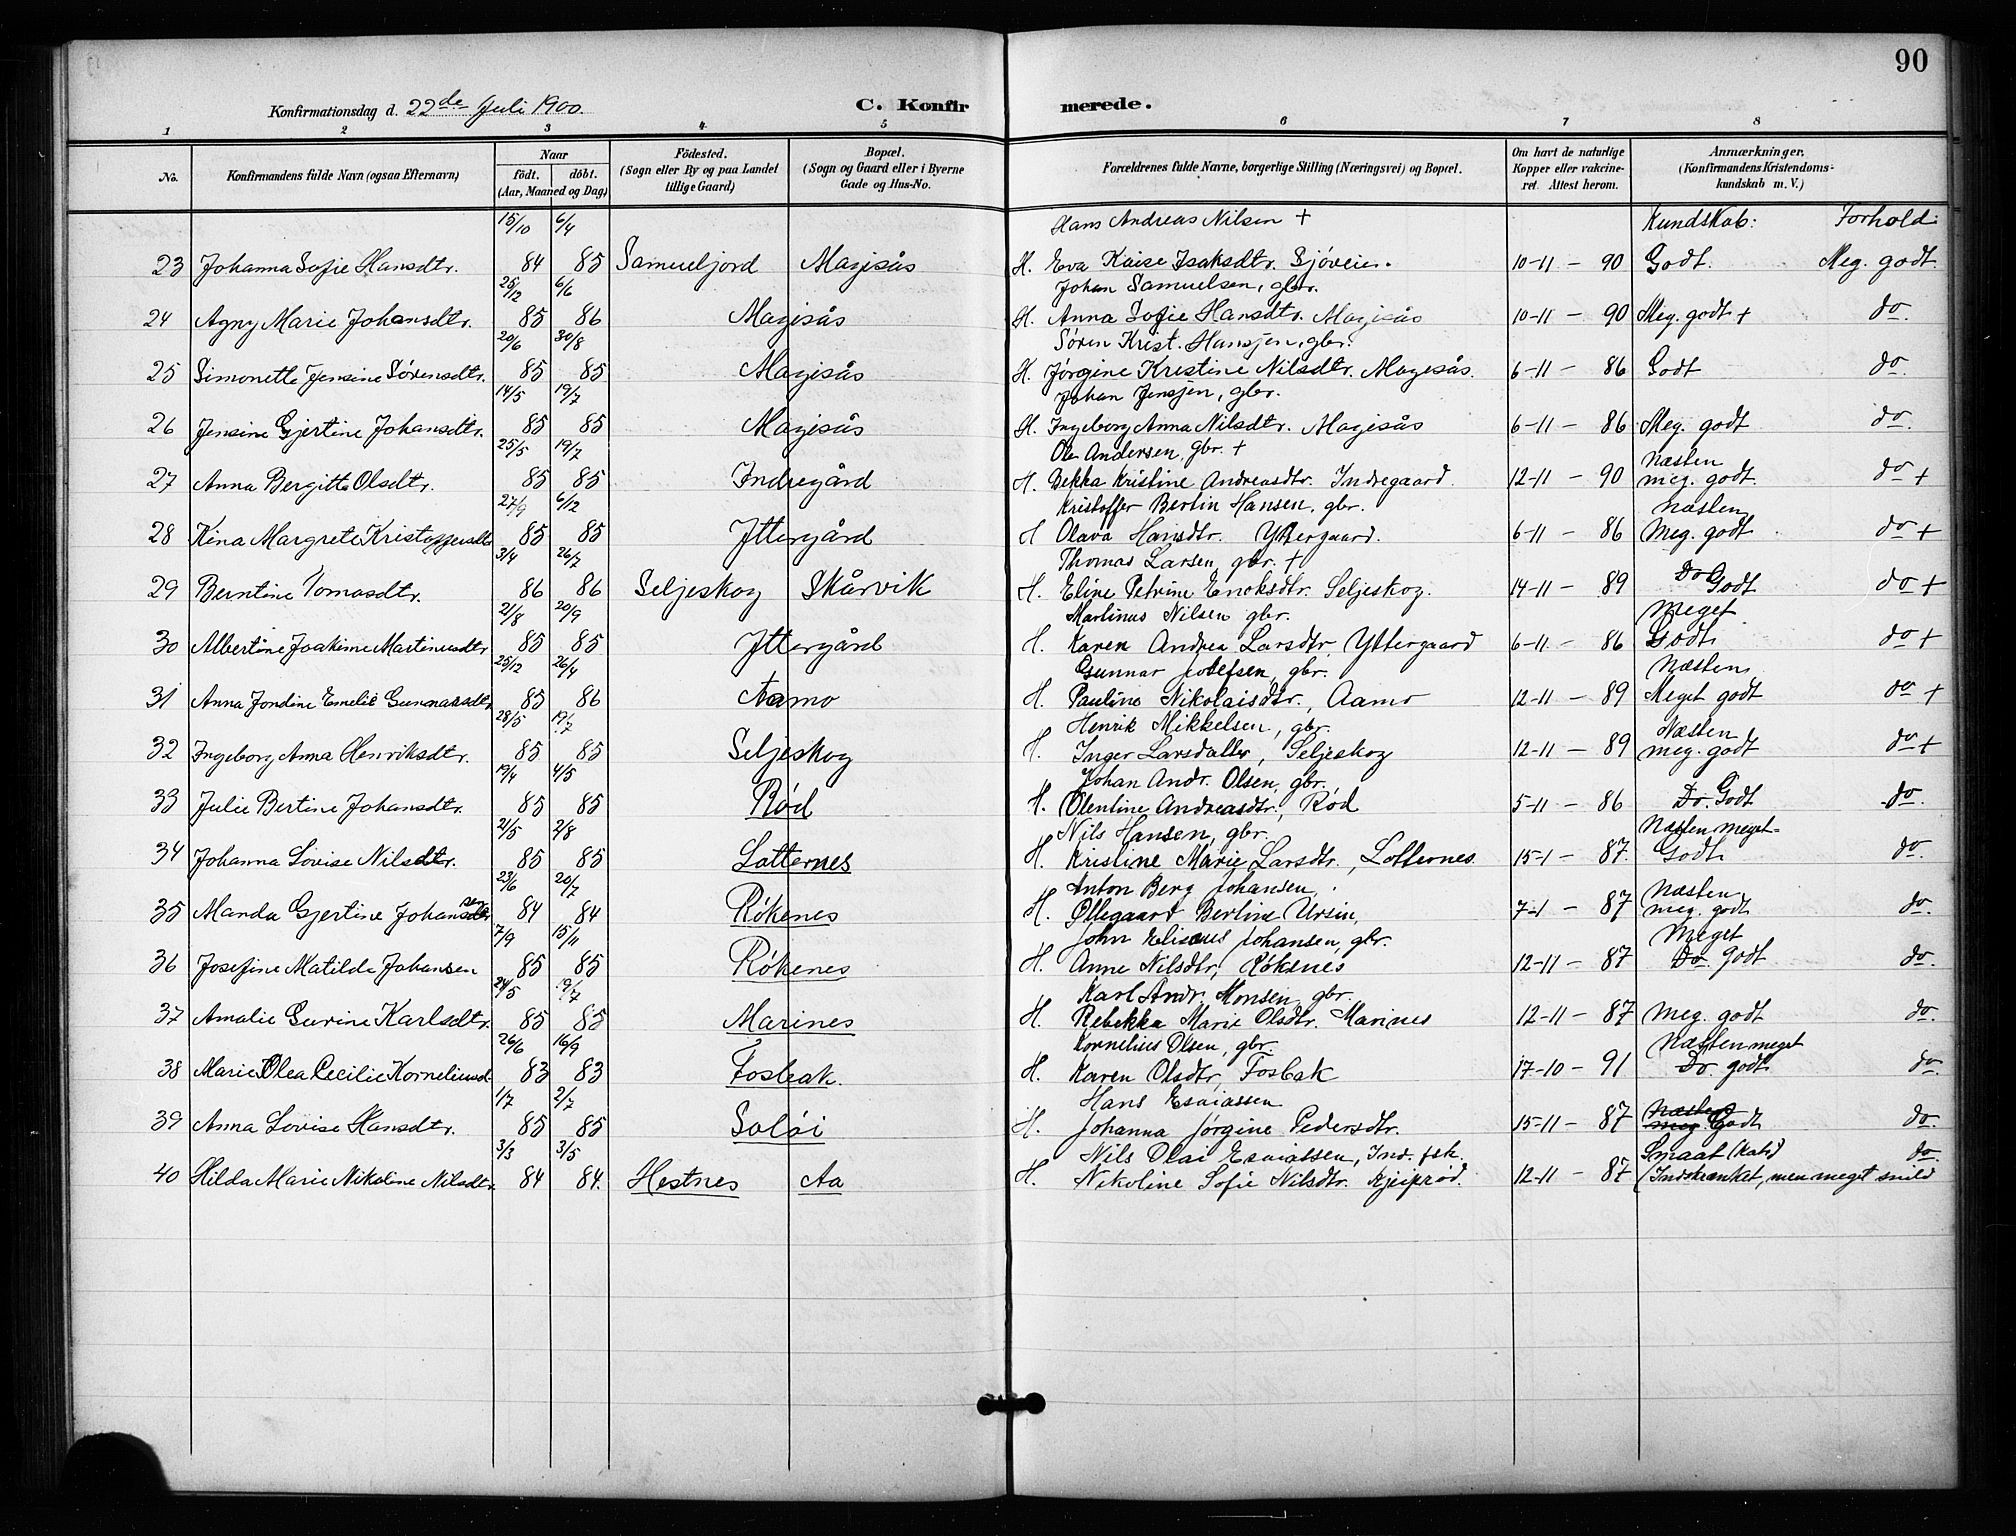 90
Konfirmationsdag d. 22de Juli 1900. C. Konfirmerede.
1 2 3 4 5 6 7 8
No. Konfirmandens fulde Navn (ogsaa Efternavn) Naar födt. döbt. (Aar, Maaned og Dag) Födested. (Sogn eller By og paa Landet tillige Gaard) Bopæl. (Sogn og Gaard eller i Byerne Gade og Hus-No. Forældrenes fulde Navne, borgerlige Stilling (Næringsvei) og Bopæl. Om havt de naturlige Kopper eller vakcineret. Attest herom. Anmærkninger. (Konfirmandens Kristendomskundskab m. V.)
15/10 6/4 Hans Andreas Nilsen + Kundskab: Forhold:
23 Johanna Sofie Hansdtr. 84 85 Samueljord Magisås H. Eva Kaise Isaksdtr. Sjöveien. 10-11 - 90 Godt. Meg. godt.
25/12 6/6 Johan Samuelsen, gbr.
24 Agny Marie Johansdtr. 85 86 Magisås H. Anna Sofie Hansdtr. Magisås 10-11 - 90 Meg. godt + do.
20/6 30/8 Søren Krist. Hansjen, gbr.
25 Simonette Jensine Sörensdtr. 85 85 Magisås H. Jørgine Kristine Nilsdtr. Magisås. 6-11 - 86 Godt do.
14/5 19/7 Johan Jensjen, gbr.
26 Jensine Gjertine Johansdtr. 85 85 Magisås H. Ingeborg Anna Nilsdtr. Magisås 6-11 - 86 Meg. godt do.
25/5 19/7 Ole Andersen, gbr. + Næsten
27 Anna Bergitte Olsdtr. 85 85 Indregård H. Bekka Kristine Andreasdtr. Indregaard. 12-11 - 90 meg. godt. do +
27/9 6/12 Kristoffer Bertin Hansen, gbr. Næsten
28 Kina Margrete Kristoffersdtr 85 85 Ittergård H Olava Hansdtr. Yttergaard. 6-11 - 86 Meg. godt do +
3/4 26/7 Thomas Larsen, gbr. +
29 Berntine Tomasdtr. 86 86 Seljeskog Skårvik H. Eline Petrine Enoksdtr. Seljeskog. 14-11 - 89 Do Godt do +
21/8 20/9 Martinus Nilsen gbr. Meget
30 Albertine Joakime Martinusdtr 85 85 Ittergård H. Karen Andrea Larsdtr. Yttergaard 6-11 - 86 Godt do +
25/12 26/4 Gunnar Josefsen, gbr. Næsten
31 Anna Jondine Emelie Gunnarsdtr 85 86 Aamo H. Pauline Nikolaisdtr., Aamo 12-11 - 89 Meget godt do +
28/5 19/7 Henrik Mikkelsen, gbr. Næsten
32 Ingeborg Anna Henriksdtr. 85 85 Seljeskog H. Inger Larsdatter, Seljeskog 12-11 - 89 meg. godt do +
19/4 4/5 Johan Andr. Olsen, gbr.
33 Julie Bertine Johansdtr. 85 85 Röd H. Olentine Andreasdtr., Rød 5-11 - 86 Do. Godt do.
21/5 2/8 Nils Hansen, gbr. Næsten meget
34 Johanna Lovise Nilsdtr. 85 85 Lotternes H. Kristine Marie Larsdtr., Lotternes. 15-1 - 87. Godt do.
23/6 20/7 Anton Berg Johansen, Næsten
35 Manda Gjertine Johansen 84 84 Rökenes H. Øllegaard Bertine Ursin, 7-1 - 87 meg. godt do.
7/9 15/11 John Eliseus Johansen, gbr. Meget
36 Josefine Matilde Johansen 85 85 Rökenes H. Anne Nilsdtr, Røkenes 12-11 - 87 Do Godt do.
24/5 19/7 Karl Andr. Monsen, gbr.
37 Amalie Gurine Karlsdtr. 85 85 Marines H. Rebekka Marie Olsdtr. Marines 12-11 - 87 Meg. godt do.
26/6 16/9 Kornelius Olsen, gbr. Næsten meget
38 Marie Olea Cecilie Korneliusd. 83 83 Fosbak. H. Karen Olsdtr, Fosbak 17-10 - 91 Do. godt do.
1/7 2/7 Hans Esaiassen
39 Anna Lovise Hansdtr. 85 85 Solöi H. Johanna Jørgine Pedersdtr. 15-11 - 87 Næsten meg. Godt do.
3/3 3/5 Nils Olai Esaiassen, Ind. fsk. Smaat do.
40 Hilda Marie Nikoline Nilsdtr. 84 84. Hestnes Aa H. Nikoline Sofie Nilsdtr. Kjeiprød. 12-11 - 87 (Indskrænket, men meget snild